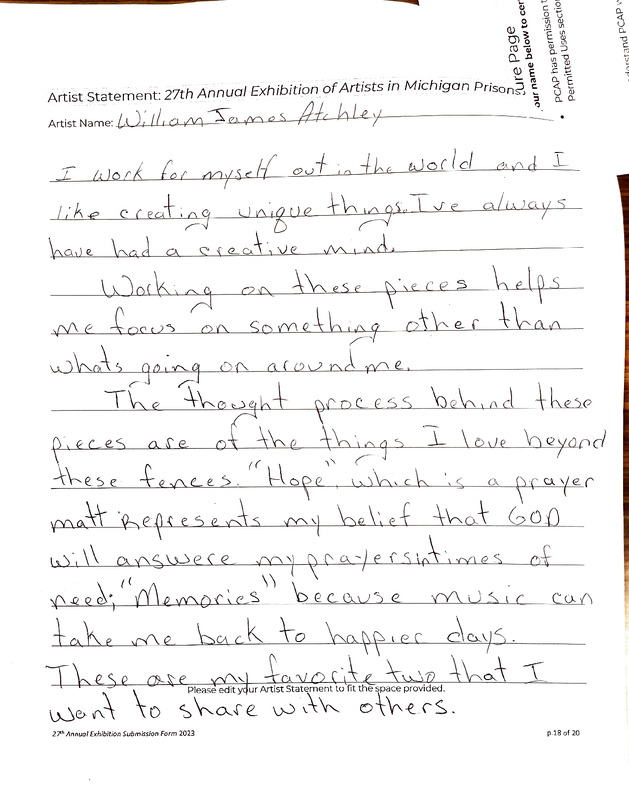 ure Page
our name below to cer
PCAP has permission t
Permitted Uses section
derstand PCAP w
Artist Statement: 27th Annual Exhibition of Artists in Michigan Prisons
Artist Name: William James Atchley
I work for myself out in the world and I
like creating unique things. I've always
have had a creative mind.
Working on these pieces helps
me focus on something other than
whats going on around me.
The thought process behind these
pieces are of the things I love beyond
these fences. "Hope", which is a prayer
matt Represents my belief that GOD
will answere my prayers in times of
need; "Memories" because music can
take me back to happier days.
These are my favorite two that I
Please edit your Artist Statement to fit the space provided.
want to share with others.
27th Annual Exhibition Submission Form 2023
p.18 of 20